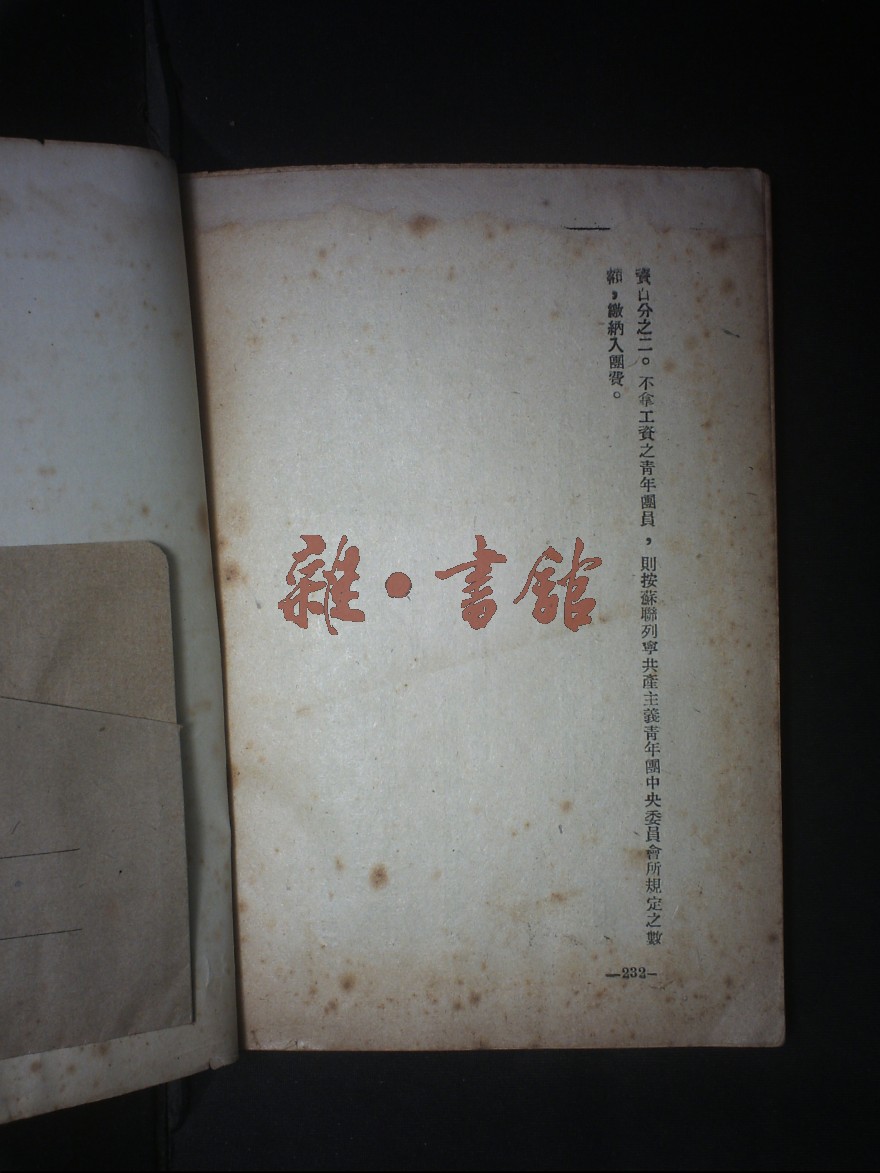 資百分之二。不拿工資之青年團員，則按蘇聯列寧共產主義青年團中央委員會所規定之數
額，繳納入團費。
—232—
雜·書館